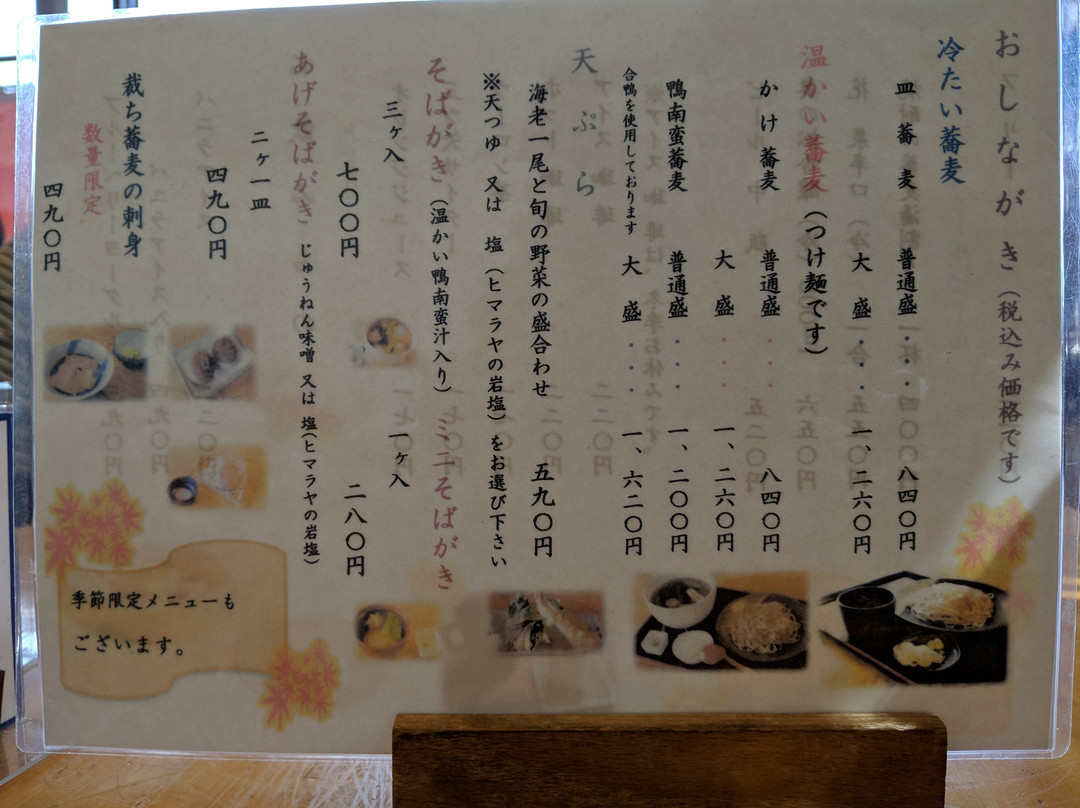 おしながき（税込み価格です）
冷たい蕎麦
皿蕎麦 普通盛・・・ 八四〇円
大盛・・・ 一、二六〇円
温かい蕎麦（つけ麺です）
かけ蕎麦 普通盛・・・ 八四〇円
大盛・・・ 一、二六〇円
鴨南蛮蕎麦 普通盛・・・ 一、二〇〇円
合鴨を使用しております 大盛・・・ 一、六二〇円
天ぷら
海老一尾と旬の野菜の盛合わせ 五九〇円
※天つゆ 又は 塩（ヒマラヤの岩塩）をお選び下さい
そばがき（温かい鴨南蛮汁入り） ミニそばがき
三ヶ入 一ヶ入
七〇〇円 二八〇円
あげそばがき じゅうねん味噌 又は 塩（ヒマラヤの岩塩）
二ヶ一皿
四九〇円
裁ち蕎麦の刺身
数量限定
四九〇円
季節限定メニューも
ございます。